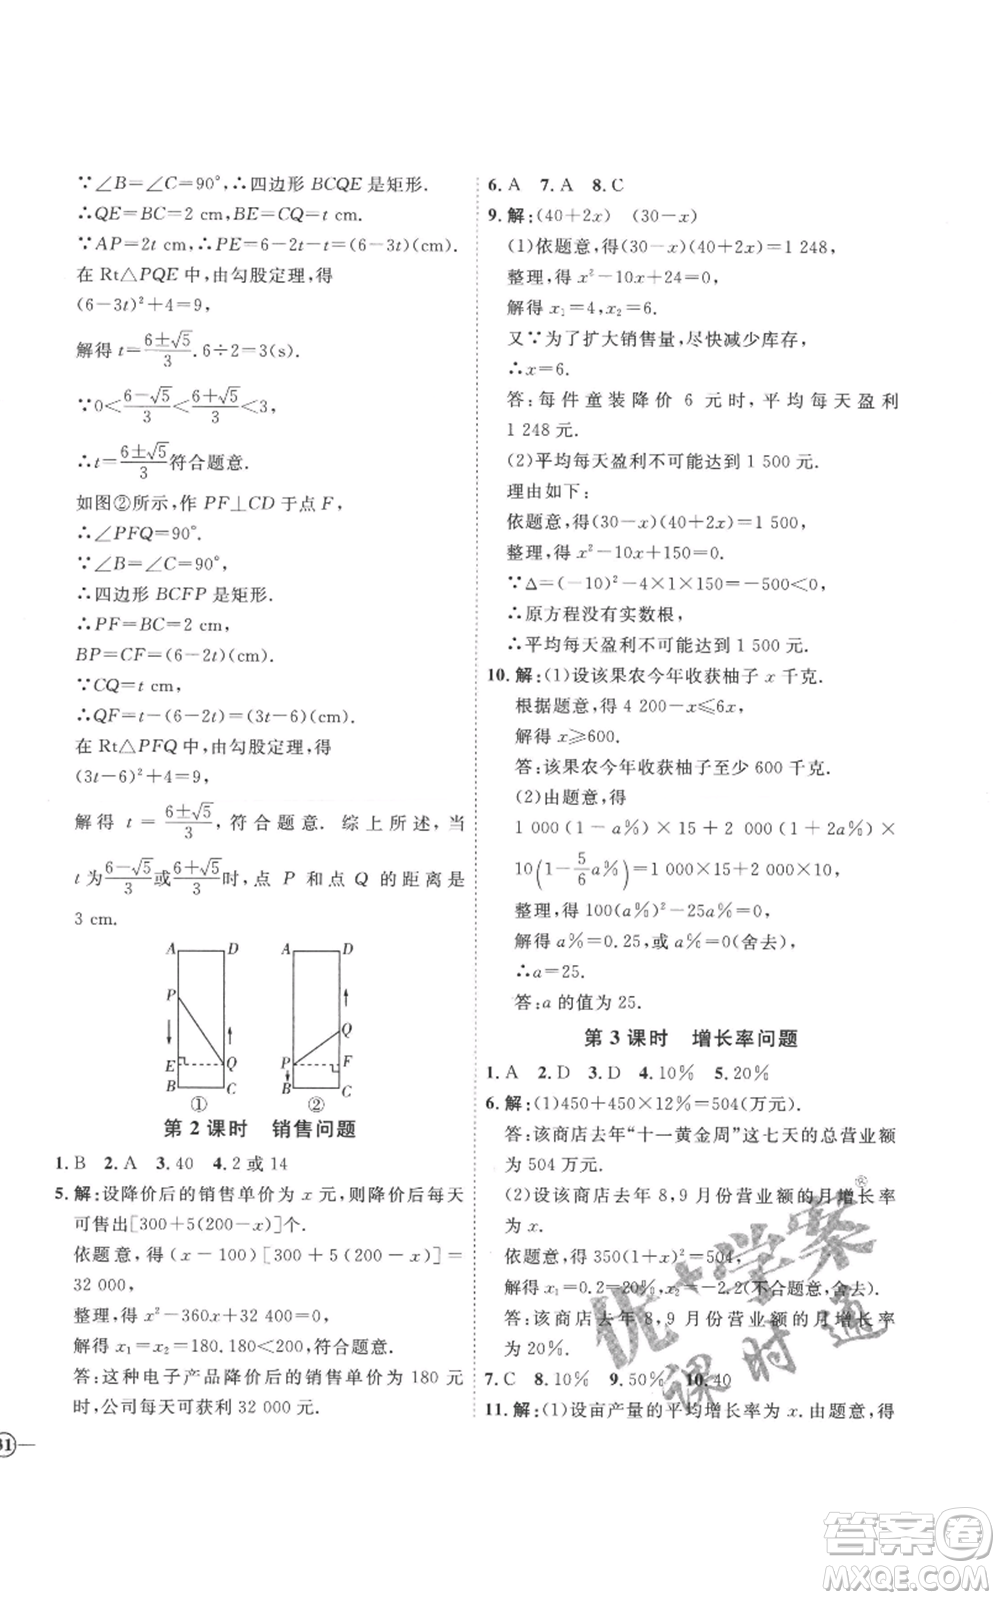 ∵∠B=∠C=90°,∴四边形 BCQE 是矩形.
∴QE=BC=2 cm,BE=CQ=t cm.
∵AP=2t cm,∴PE=6-2t-t=(6-3t)(cm).
在 Rt△PQE 中,由勾股定理,得
(6-3t)²+4=9,
解得 t=(6±√5)/3.6÷2=3(s).
∵0<(6-√5)/3<(6+√5)/3<3,
∴t=(6±√5)/3符合题意.
如图②所示,作 PF⊥CD 于点 F,
∴∠PFQ=90°.
∵∠B=∠C=90°,
∴四边形 BCFP 是矩形.
∴PF=BC=2 cm,
BP=CF=(6-2t)(cm).
∵CQ=t cm,
∴QF=t-(6-2t)=(3t-6)(cm).
在 Rt△PFQ 中,由勾股定理,得
(3t-6)²+4=9,
解得 t=(6±√5)/3,符合题意. 综上所述,当
t 为(6-√5)/3或(6+√5)/3时,点 P 和点 Q 的距离是
3 cm.
A D A D
P
Q
E Q P F
B C B C
① ②
第 2 课时 销售问题
1. B 2. A 3. 40 4. 2 或 14
5. 解:设降价后的销售单价为 x 元,则降价后每天
可售出[300+5(200-x)]个.
依题意,得(x-100)[300+5(200-x)]=
32 000,
整理,得 x²-360x+32 400=0,
解得 x₁=x₂=180.180<200,符合题意.
答:这种电子产品降价后的销售单价为 180 元
时,公司每天可获利 32 000 元.
31
6. A 7. A 8. C
9. 解:(40+2x) (30-x)
(1)依题意,得(30-x)(40+2x)=1 248,
整理,得 x²-10x+24=0,
解得 x₁=4,x₂=6.
又∵为了扩大销售量,尽快减少库存,
∴x=6.
答:每件童装降价 6 元时,平均每天盈利
1 248 元.
(2)平均每天盈利不可能达到 1 500 元.
理由如下:
依题意,得(30-x)(40+2x)=1 500,
整理,得 x²-10x+150=0.
∵Δ=(-10)²-4×1×150=-500<0,
∴原方程没有实数根,
∴平均每天盈利不可能达到 1 500 元.
10. 解:(1)设该果农今年收获柚子 x 千克.
根据题意,得 4 200-x≤6x,
解得 x≥600.
答:该果农今年收获柚子至少 600 千克.
(2)由题意,得
1 000(1-a%)×15+2 000(1+2a%)×
10(1-5/6a%)=1 000×15+2 000×10,
整理,得 100(a%)²-25a%=0,
解得 a%=0.25,或 a%=0(舍去),
∴a=25.
答:a 的值为 25.
第 3 课时 增长率问题
1. A 2. D 3. D 4. 10% 5. 20%
6. 解:(1)450+450×12%=504(万元).
答:该商店去年“十一黄金周”这七天的总营业额
为 504 万元.
(2)设该商店去年 8,9 月份营业额的月增长率
为 x.
依题意,得 350(1+x)²=504,
解得 x₁=0.2=20%,x₂=-2.2(不合题意,舍去).
答:该商店去年 8,9 月份营业额的月增长率为
20%.
7. C 8. 10% 9. 50% 10. 40
11. 解:(1)设亩产量的平均增长率为 x. 由题意,得
优+学案
课时通
答案卷
MXQE.COM